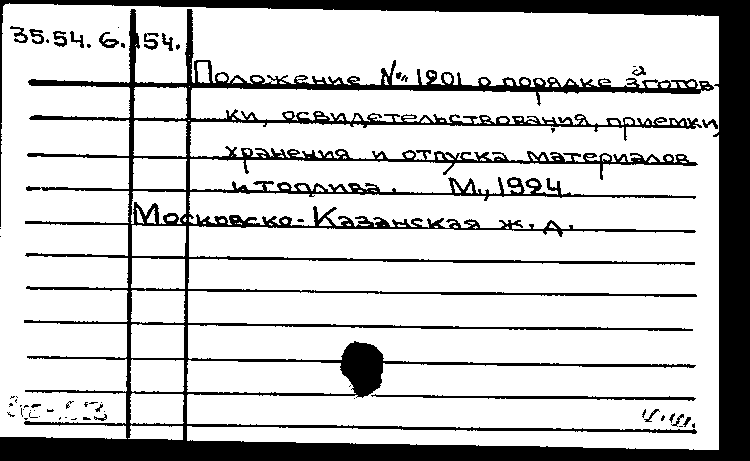 35.54.6.154.
Положение №" 1201 о порядке заготов-
ки, освидетельствования, приемки,
хранения и отпуска материалов
и топлива. М., 1924.
Московско-Казанская ж.д.